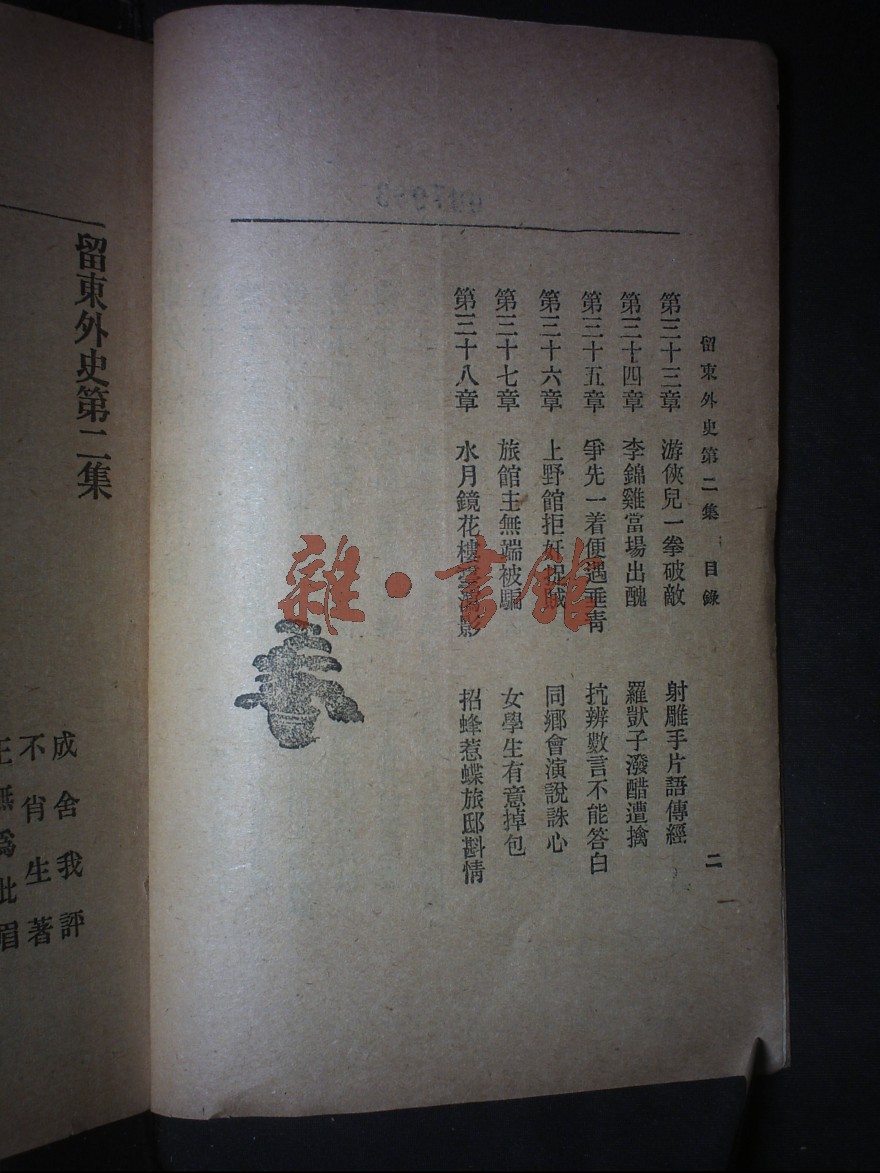 留東外史第二集　目錄　二
第三十三章　游俠兒一拳破敵　射雕手片語傳經
第三十四章　李錦雞當場出醜　羅獃子潑醋遭擒
第三十五章　爭先一着便遇垂青　抗辨數言不能答白
第三十六章　上野館拒奸捉賊　同鄉會演說誅心
第三十七章　旅館主無端被騙　女學生有意掉包
第三十八章　水月鏡花樓臺影　招蜂惹蝶旅邸斟情
雜・書館
留東外史第二集
成舍我評
不肖生著